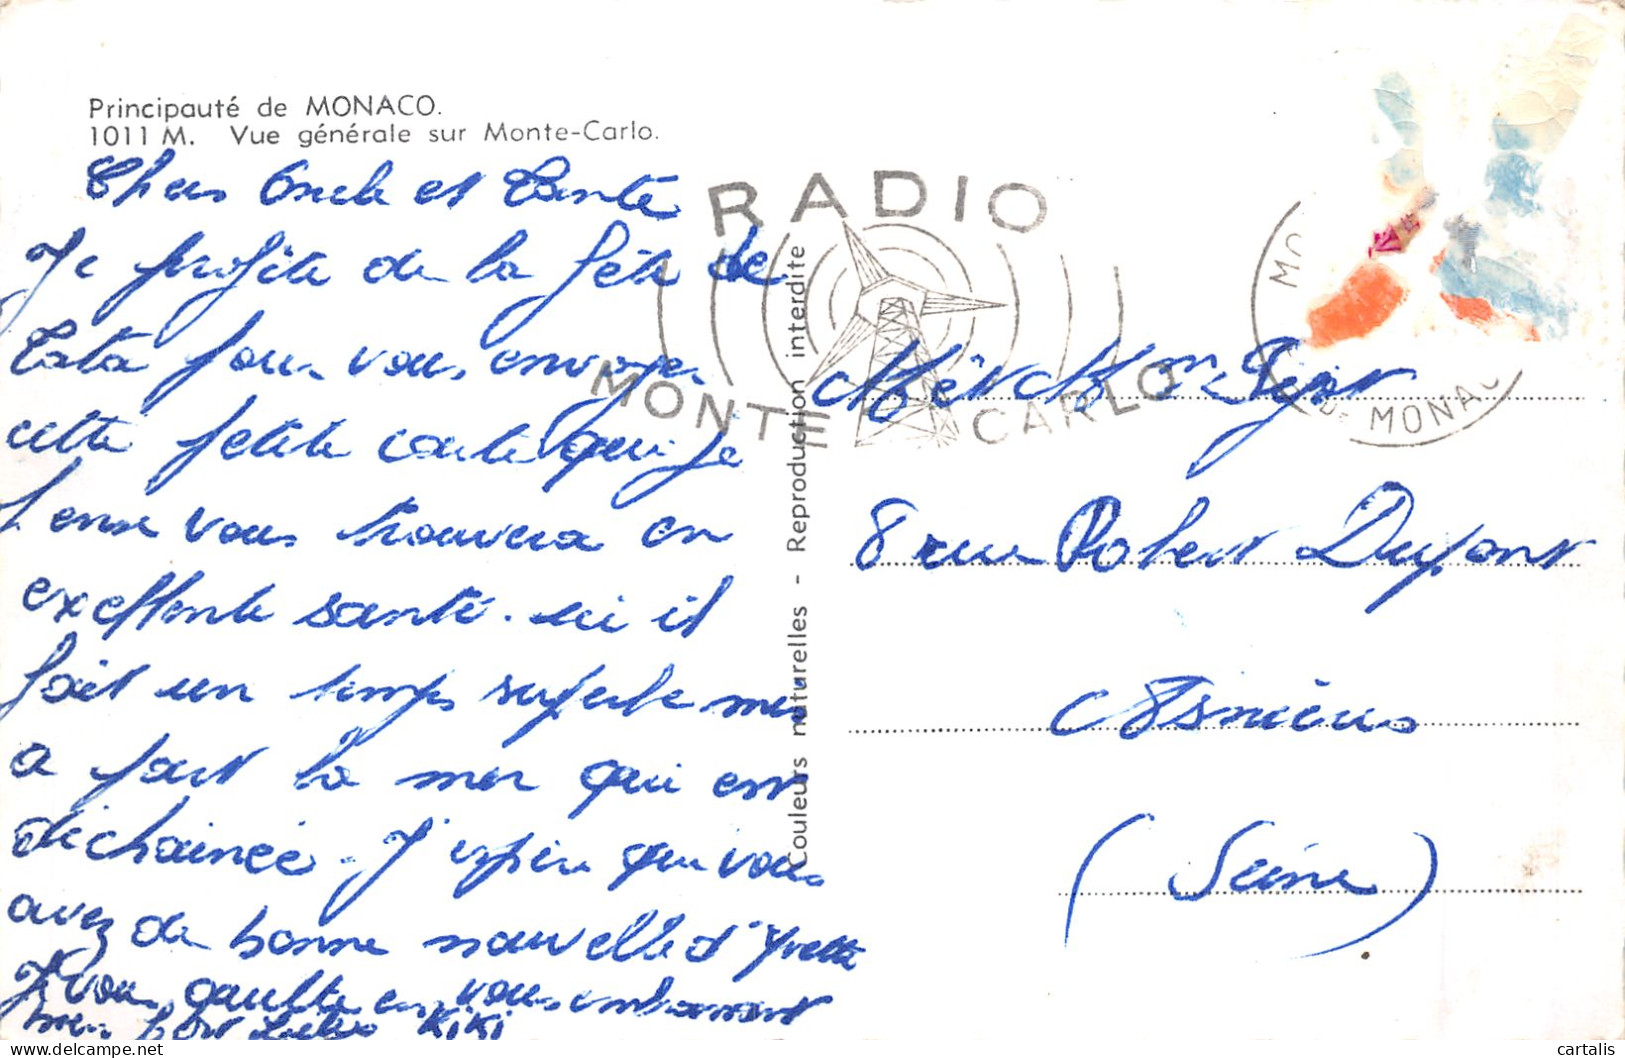 Principauté de MONACO.
1011 M. Vue générale sur Monte-Carlo.
Chers Oncle et Tante
Je profite de la fête de
Tata pour vous envoyer
cette petite carte qui je
pense vous trouvera en
exellente santé. ici il
fait un temps superbe mes
a part la mer qui est
déchainée. J'espère que vous
avez de bonne nouvelle d'Yvette
Je vous quitte en vous embrassant
bien fort KiKi
RADIO
MONTE CARLO
Couleurs naturelles - Reproduction interdite
DE MONACO
Mr et Mme
8 rue Robert Dupont
Asnières
(Seine)
cartalis